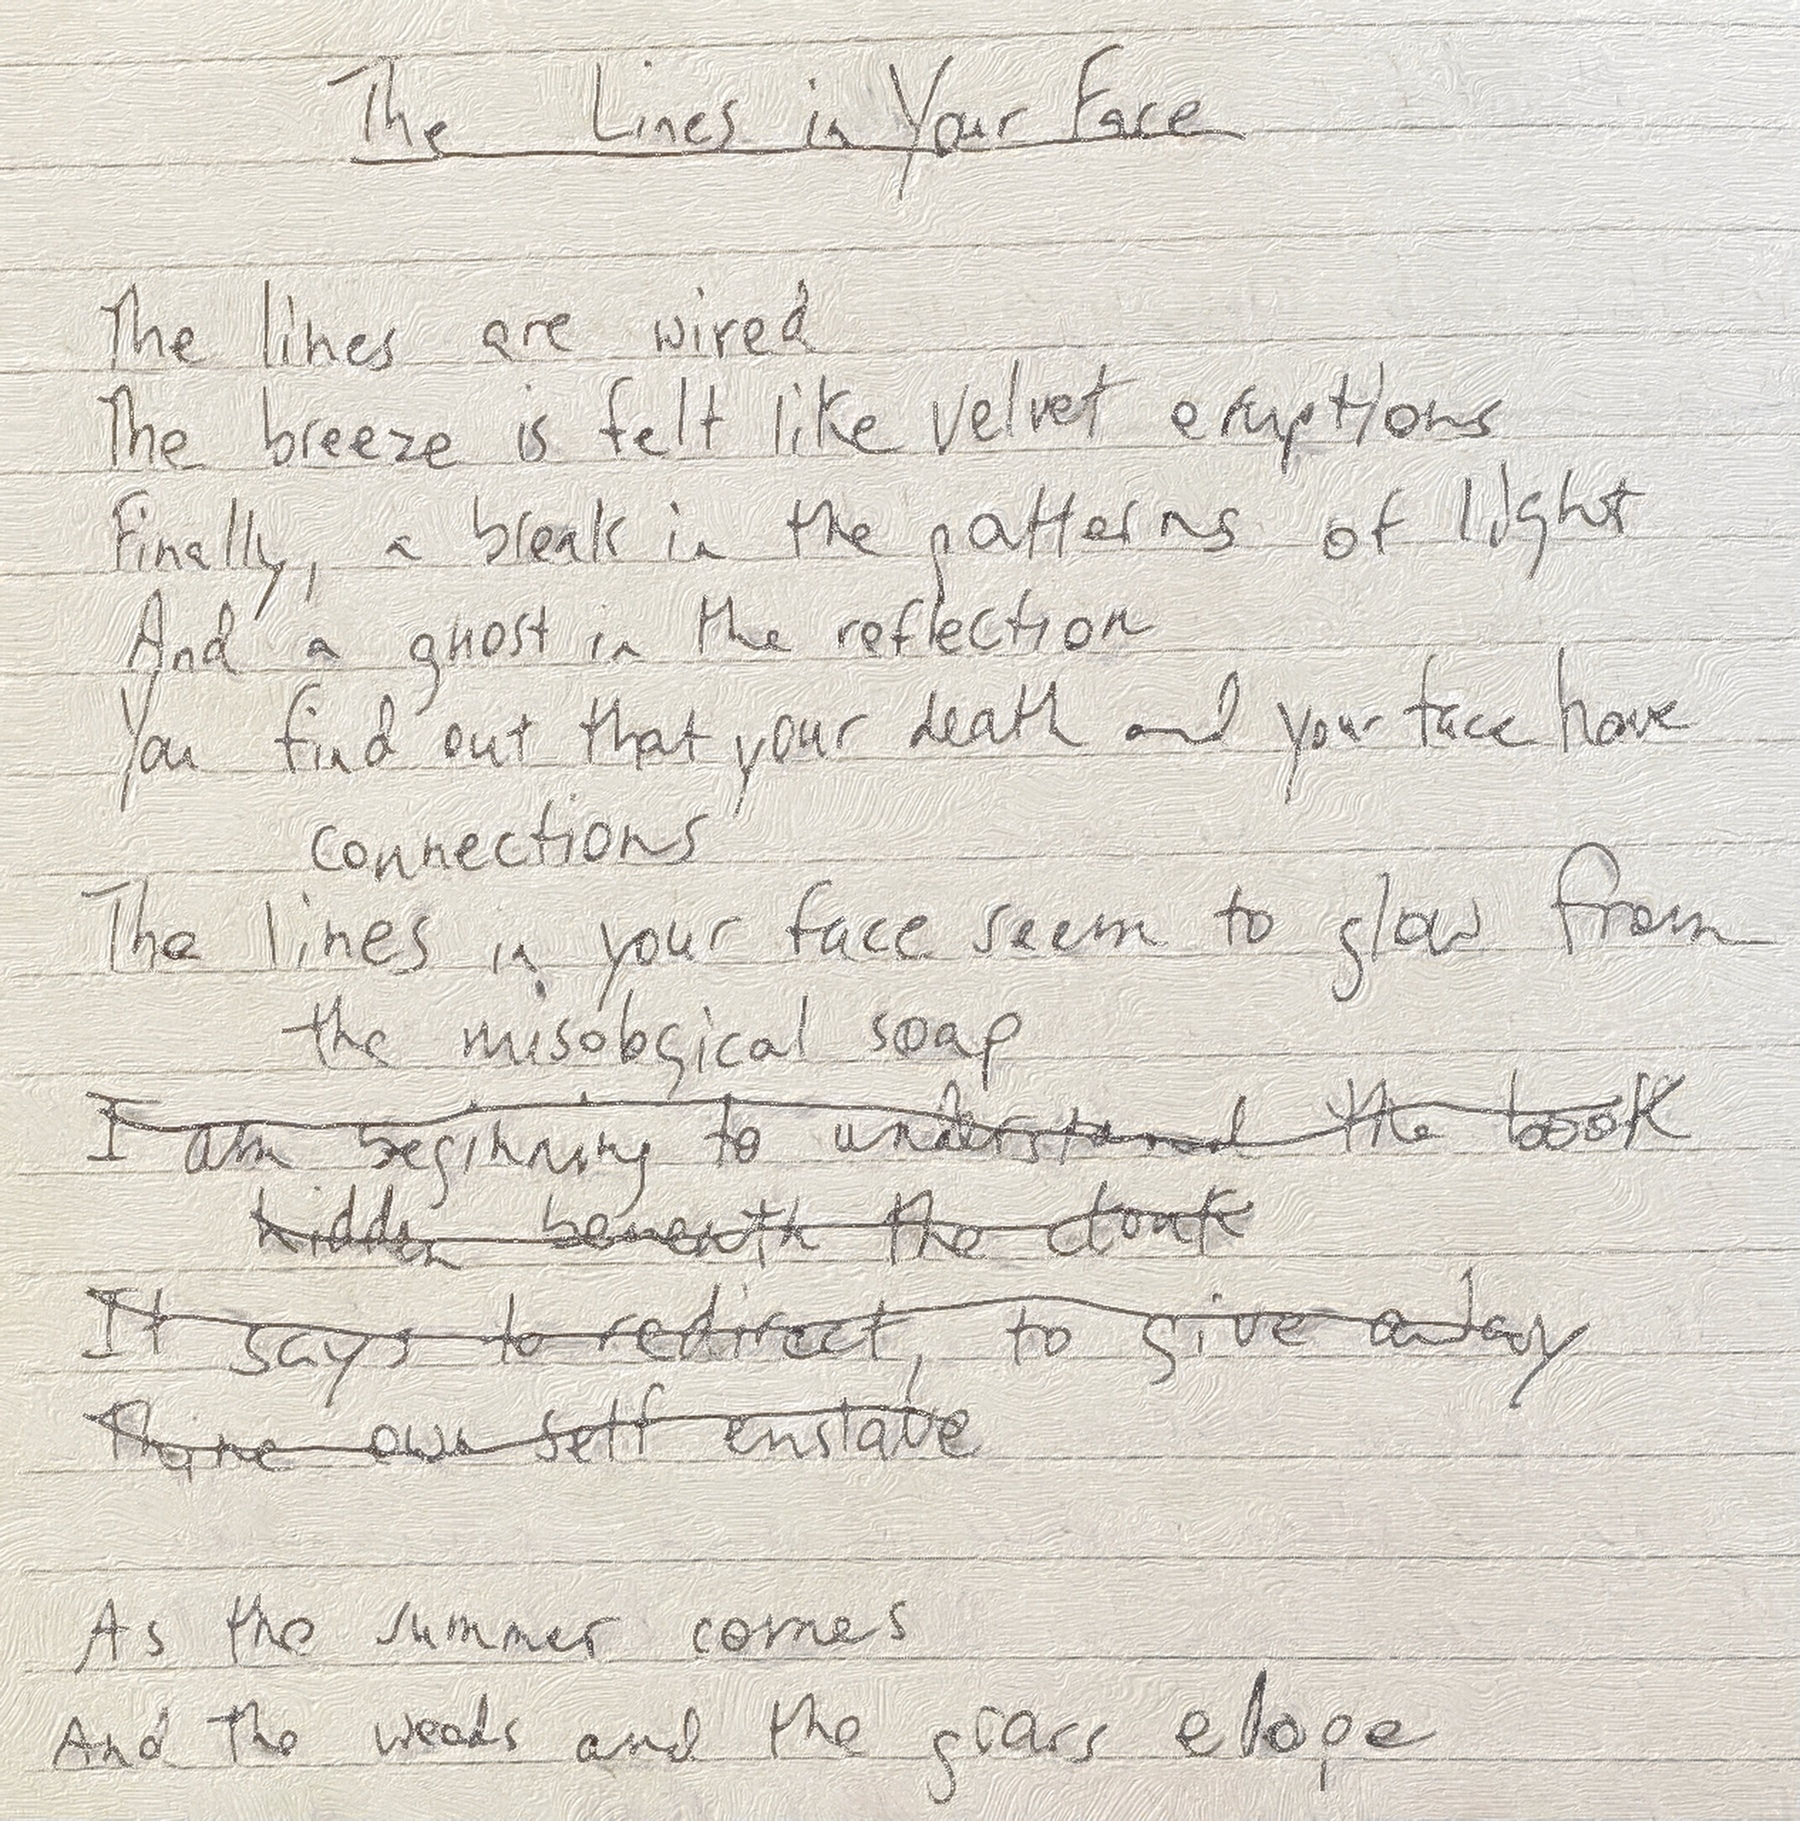 The Lines in Your Face
The lines are wired
The breeze is felt like velvet eruptions
Finally, a break in the patterns of light
And a ghost in the reflection
You find out that your death and your face have
connections
The lines in your face seem to glow from
the misological soap
I am beginning to understand the book
hidden beneath the cloak
It says to redirect, to give away
Thine own self enslave
As the summer comes
And the weeds and the grass elope